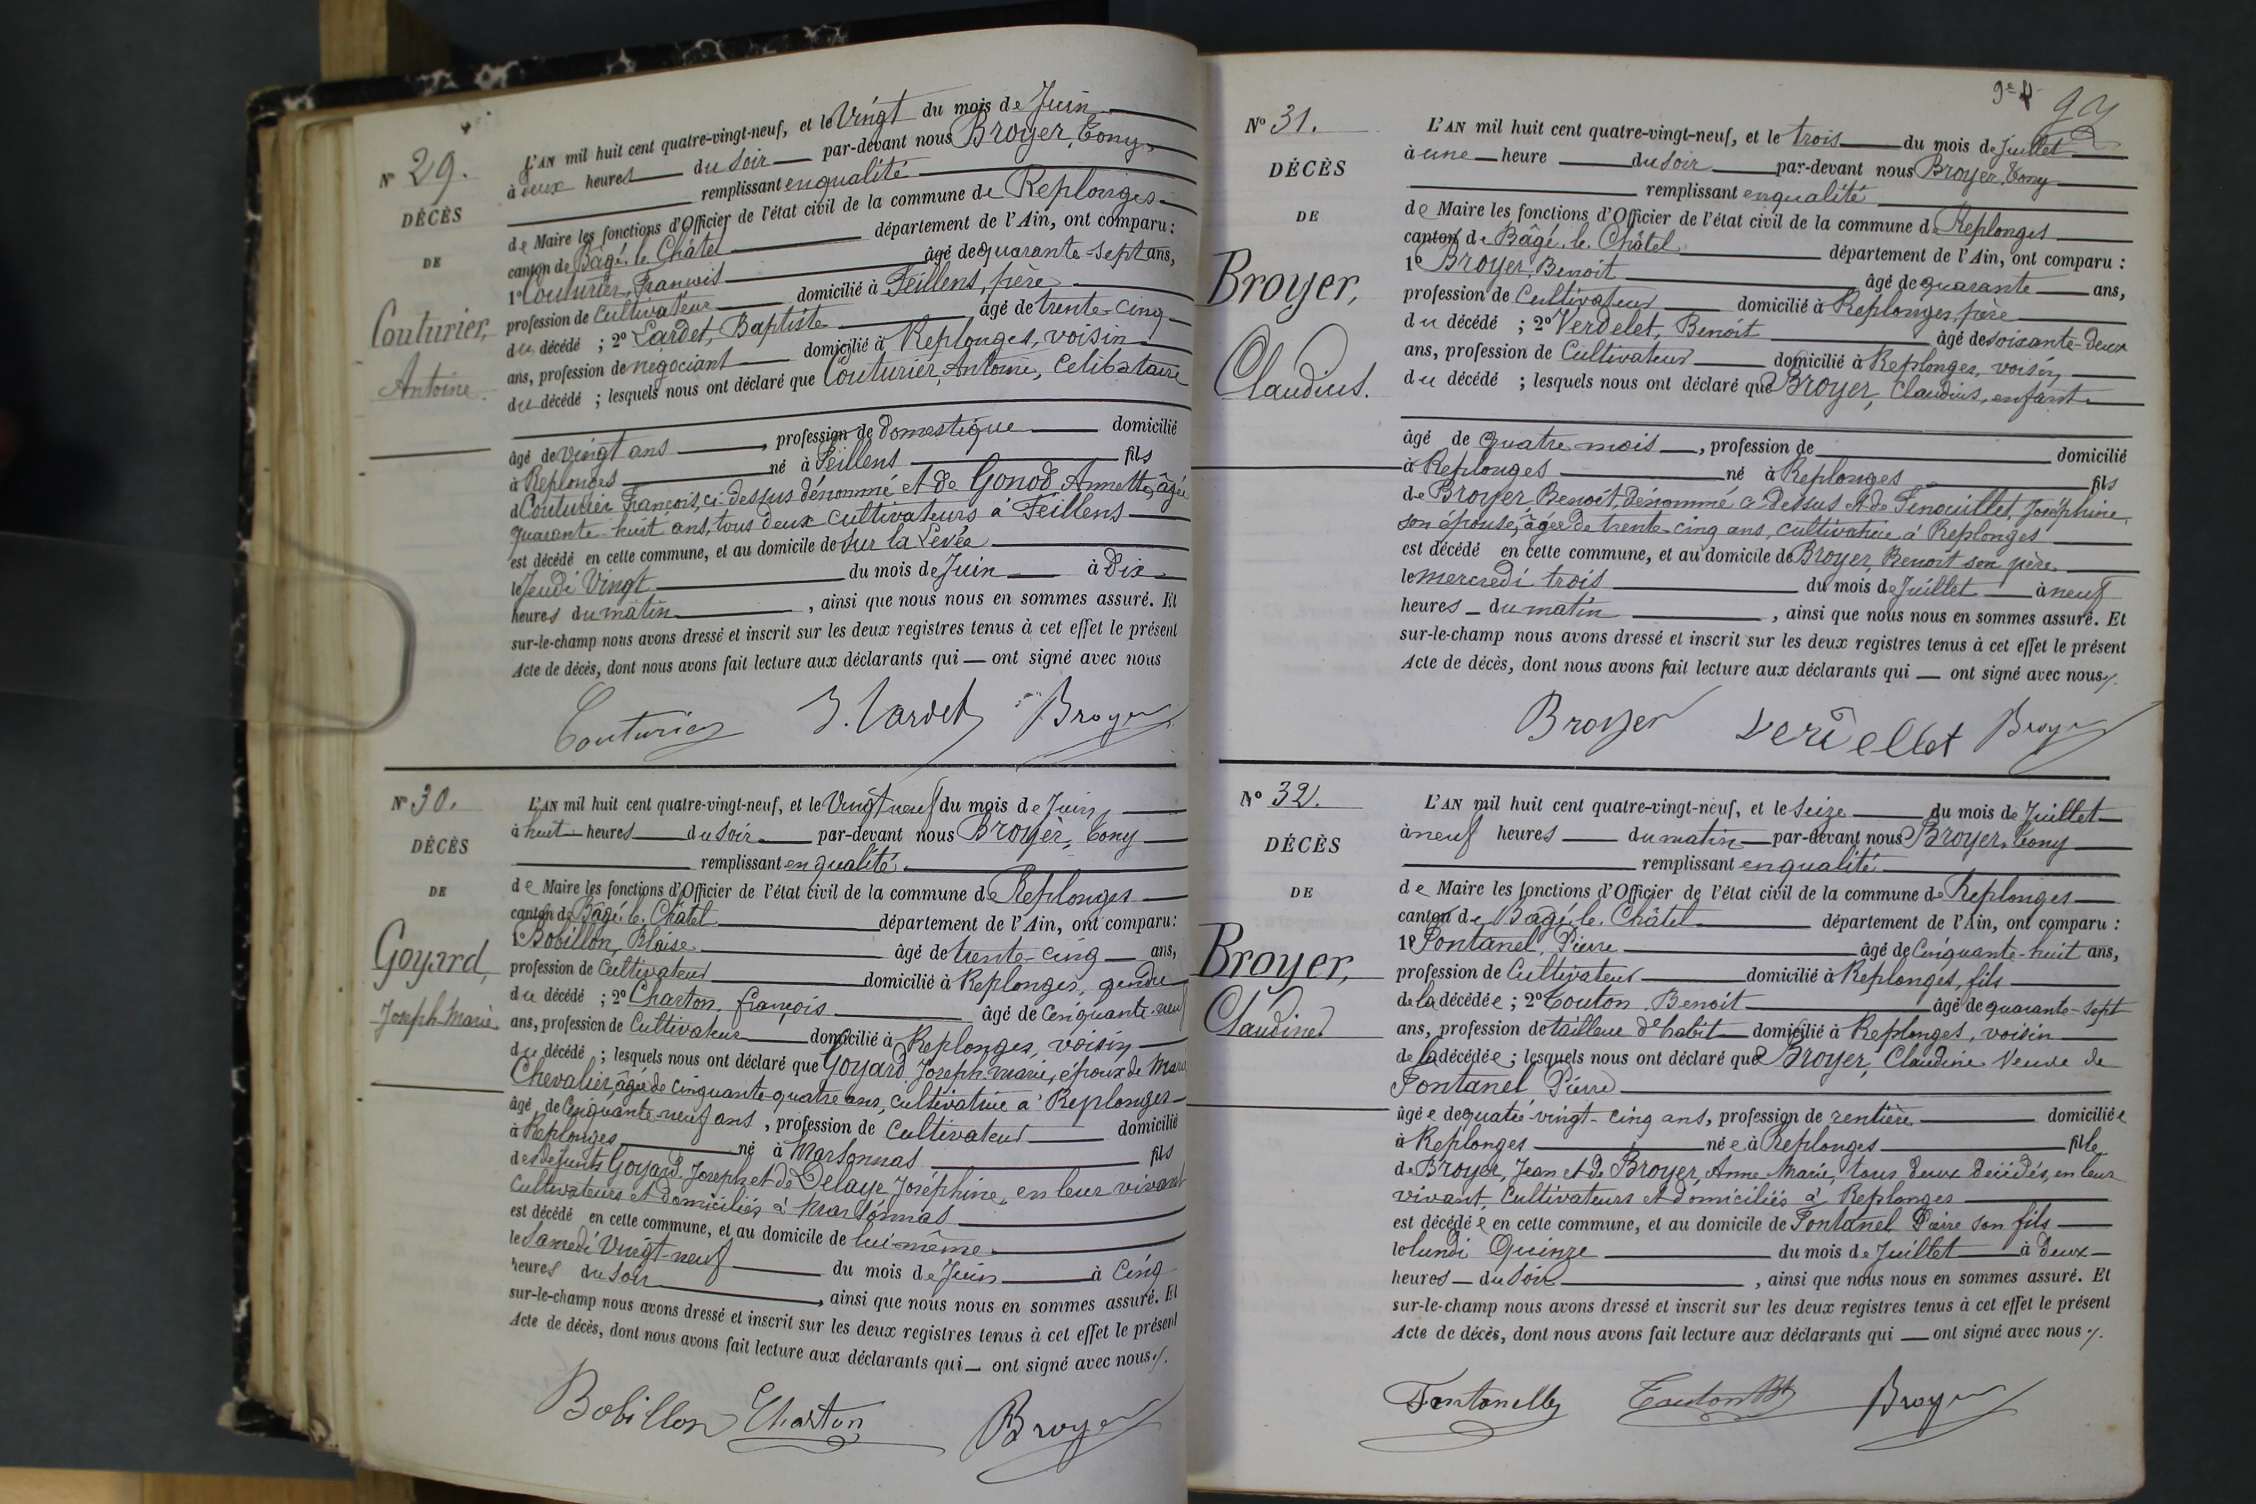 N° 29.
DÉCÈS
DE
Couturier,
Antoine.
L'AN mil huit cent quatre-vingt-neuf, et le Vingt du mois de Juin
à deux heures du soir par-devant nous Broyer, Tony
remplissant en qualité
de Maire les fonctions d'Officier de l'état civil de la commune de Replonges
canton de Bâgé-le-Châtel département de l'Ain, ont comparu :
1° Couturier, François âgé de quarante-sept ans,
profession de cultivateur domicilié à Feillens, père
du décédé ; 2° Lardet, Baptiste âgé de trente-cinq
ans, profession de négociant domicilié à Replonges, voisin
du décédé ; lesquels nous ont déclaré que Couturier, Antoine, Célibataire
âgé de vingt ans, profession de domestique domicilié
à Replonges né à Feillens fils
d Couturier François, ci-dessus dénommé et de Gonod Annette, âgée
quarante-huit ans, tous deux cultivateurs à Feillens
est décédé en cette commune, et au domicile de sur la Levée
le Jeudi Vingt du mois de Juin à Dix
heures du matin, ainsi que nous nous en sommes assuré. Et
sur-le-champ nous avons dressé et inscrit sur les deux registres tenus à cet effet le présent
Acte de décès, dont nous avons fait lecture aux déclarants qui — ont signé avec nous
Couturier Lardet Broyer
N° 30.
DÉCÈS
DE
Goyard,
Joseph-Marie.
L'AN mil huit cent quatre-vingt-neuf, et le Vingt neuf du mois de Juin
à huit heures du soir par-devant nous Broyer, Tony
remplissant en qualité
de Maire les fonctions d'Officier de l'état civil de la commune de Replonges
canton de Bâgé-le-Châtel département de l'Ain, ont comparu :
1° Bobillon, Blaise âgé de trente-cinq ans,
profession de Cultivateur domicilié à Replonges, gendre
du décédé ; 2° Charton, françois âgé de Cinquante-neuf
ans, profession de Cultivateur domicilié à Replonges, voisin
du décédé ; lesquels nous ont déclaré que Goyard Joseph-Marie, époux de Marie
Chevalier, âgée de cinquante-quatre ans, cultivatrice à Replonges
âgé de Cinquante-neuf ans, profession de Cultivateur domicilié
à Replonges né à Marsonnas fils
des défunts Goyard, Joseph et de Delaye Joséphine, en leur vivant
cultivateurs et domiciliés à Marsonnas
est décédé en cette commune, et au domicile de lui-même
le Samedi Vingt-neuf du mois de Juin à Cinq
heures du soir, ainsi que nous nous en sommes assuré. Et
sur-le-champ nous avons dressé et inscrit sur les deux registres tenus à cet effet le présent
Acte de décès, dont nous avons fait lecture aux déclarants qui — ont signé avec nous.
Bobillon Charton Broyer
N° 31.
DÉCÈS
DE
Broyer,
Claudius.
L'AN mil huit cent quatre-vingt-neuf, et le trois du mois de Juillet
à une heure du soir par-devant nous Broyer, Tony
remplissant en qualité
de Maire les fonctions d'Officier de l'état civil de la commune de Replonges
canton de Bâgé-le-Châtel département de l'Ain, ont comparu :
1° Broyer, Benoît âgé de quarante ans,
profession de Cultivateur domicilié à Replonges, père
du décédé ; 2° Verdelet, Benoît âgé de soixante-deux
ans, profession de Cultivateur domicilié à Replonges, voisin
du décédé ; lesquels nous ont déclaré que Broyer, Claudius, enfant
âgé de quatre mois, profession de domicilié
à Replonges né à Replonges fils
de Broyer Benoît, dénommé ci-dessus et de Fenouillet, Joséphine
son épouse, âgée de trente-cinq ans, cultivatrice à Replonges
est décédé en cette commune, et au domicile de Broyer, Benoît son père
le mercredi trois du mois de Juillet à neuf
heures du matin, ainsi que nous nous en sommes assuré. Et
sur-le-champ nous avons dressé et inscrit sur les deux registres tenus à cet effet le présent
Acte de décès, dont nous avons fait lecture aux déclarants qui — ont signé avec nous.
Broyer Verdellet Broyer
N° 32.
DÉCÈS
DE
Broyer,
Claudine.
L'AN mil huit cent quatre-vingt-neuf, et le seize du mois de Juillet
à neuf heures du matin par-devant nous Broyer, Tony
remplissant en qualité
de Maire les fonctions d'Officier de l'état civil de la commune de Replonges
canton de Bâgé-le-Châtel département de l'Ain, ont comparu :
1° Fontanel, Pierre âgé de Cinquante-huit ans,
profession de Cultivateur domicilié à Replonges, fils
de la décédée ; 2° Touton, Benoît âgé de quarante-sept
ans, profession de tailleur d'habit domicilié à Replonges, voisin
de la décédée ; lesquels nous ont déclaré que Broyer, Claudine Veuve de
Fontanel Pierre
âgée de quatre-vingt-cinq ans, profession de rentière domiciliée
à Replonges née à Replonges fille
de Broyer, Jean et de Broyer, Anne-Marie, tous deux décédés, en leur
vivant, cultivateurs et domiciliés à Replonges
est décédée en cette commune, et au domicile de Fontanel Pierre son fils
le lundi Quinze du mois de Juillet à Deux
heures du soir, ainsi que nous nous en sommes assuré. Et
sur-le-champ nous avons dressé et inscrit sur les deux registres tenus à cet effet le présent
Acte de décès, dont nous avons fait lecture aux déclarants qui — ont signé avec nous.
Fontanelle Touton Broyer